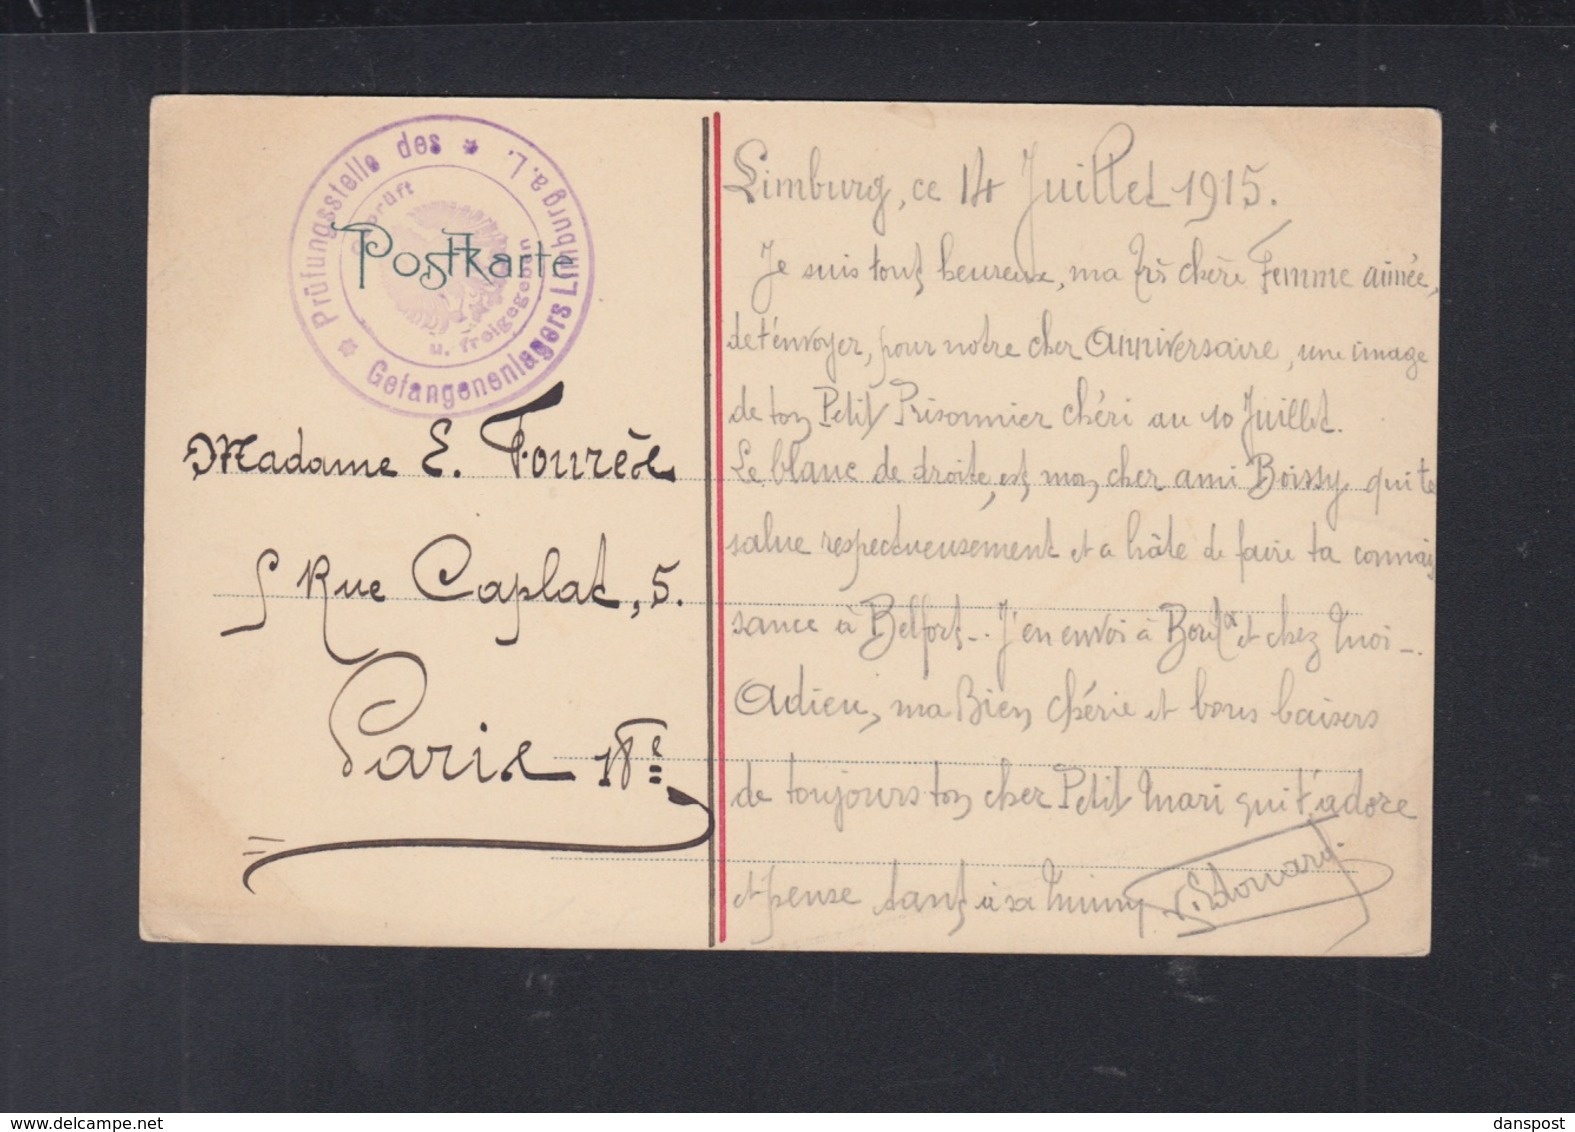 Prüfungsstelle des
Gefangenenlagers Limburg a. L.
Geprüft
u. freigegeben
Postkarte
Madame E. Fourès
Rue Caplat, 5.
Paris 18e
Limburg, ce 14 Juillet 1915.
Je suis tout heureux, ma très chère Femme aimée,
de t'envoyer, pour notre cher Anniversaire, une image
de ton Petit Prisonnier chéri au 10 Juillet.
Le blanc de droite, est mon cher ami Boissy qui te
salue respectueusement et a hâte de faire ta connais
sance à Belfort... J'en envoi à Bordx et chez moi -.
Adieu, ma Bien chérie et bons baisers
de toujours ton cher Petit Mari qui t'adore
et pense tant à sa
Edouard.
danspost